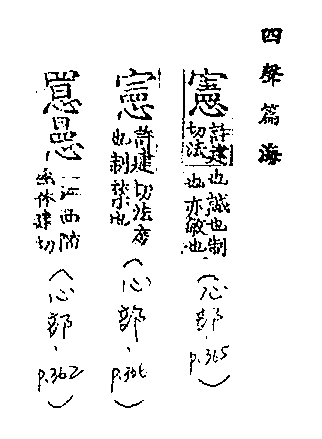 四聲篇海
憲 許建切法也誠也制也亦敏也 (心部,p.365)
許建切法度也制禁也 (心部,p.366)
江西防 休建切 (心部,p.362)